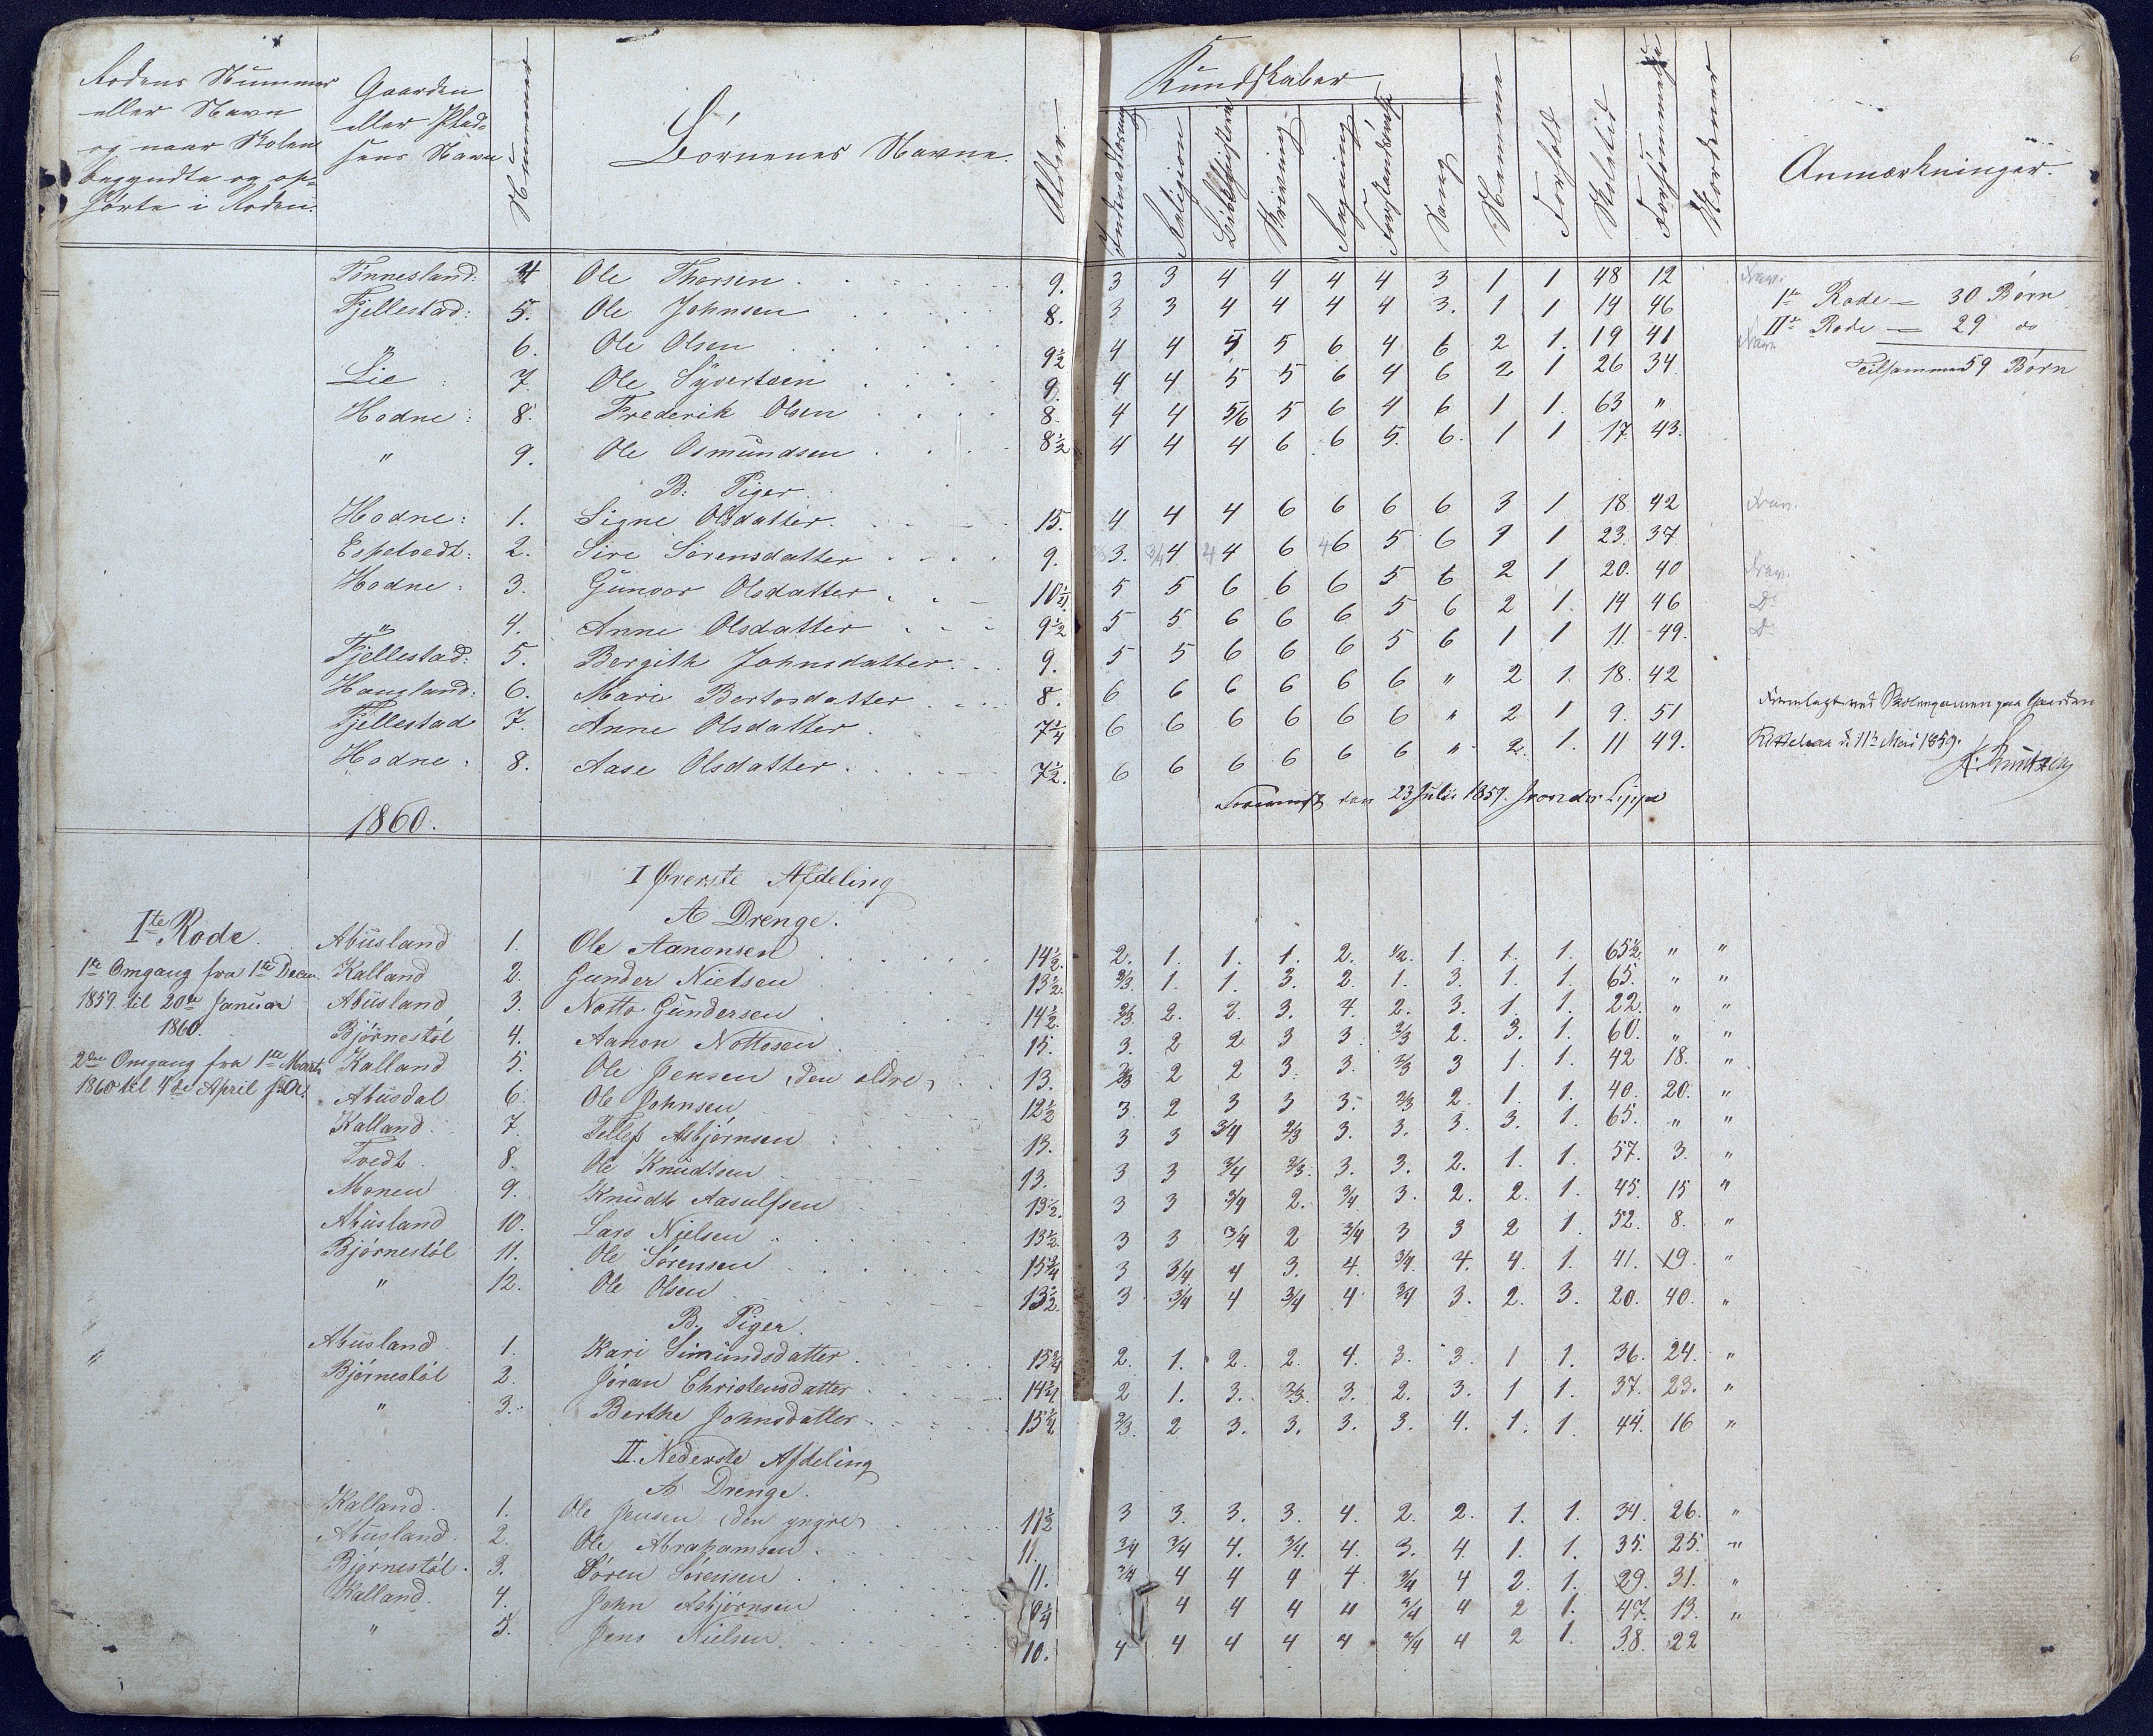 6
Rodens Nummer
eller Navn
og naar Skolen
begyndte og op-
hørte i Roden.
Gaarden
eller Plad-
sens Navn
Nummer
Børnenes Navne.
Alder
Kundskaber
Indenadlæsning
Religion
Bibelhistorie
Skrivning
Regning
Forstandsøvelse
Sang
Nemme
Forhold
Skoletid
Forsømmelse
Anmærkninger.
Tønnesland: 4 Ole Thorsen 9. 3 3 4 4 4 4 3 1 1 48 12
Fjellestad: 5. Ole Johnsen 8. 3 3 4 4 4 4 3. 1 1 14 46
" 6. Ole Olsen 9½ 4 4 5 5 6 4 6 2 1. 19 41
Lie : 7. Ole Syvertsen 9. 4 4 5 5 6 4 6 2 1 26 34
Hodne : 8. Frederik Olsen 8. 4 4 5/6 5 6 4 6 1 1. 63 "
" 9. Ole Osmundsen 8½ 4 4 4 6 6 5. 6. 1 1 17 43.
Ite Rode = 30 Børn
IIde Rode = 29 do
Tilsammen 59 Børn
B. Piger.
Hodne: 1. Signe Olsdatter. 15. 4 4 4 6 6 6 6 3 1 18 42
Espetvedt: 2. Sire Sørensdatter 9. 3. 4 4 6 6 5 6 1 1 23. 37
Hodne : 3. Gunvor Olsdatter 10½. 5 5 6 6 6 5 6 2 1 20. 40
" 4. Anne Olsdatter 9½ 5 5 6 6 6 5 6 2 1. 14 46
Fjellestad: 5. Bergith Johnsdatter 9. 5 5 6 6 6 5 6 1 1 11. 49.
Haugland: 6. Mari Bertosdatter 8. 6 6 6 6 6 6 " 2 1. 18. 42
Fjellestad 7. Anne Olsdatter 7¼ 6 6 6 6 6 6 " 2 1 9. 51
Hodne : 8. Aase Olsdatter 7½. 6 6 6 6 6 6 " 2. 1. 11 49.
Fremlagt ved Skoleexamen paa Gaarden
d. 11te Mai 1859.
den 23 Juli 1859.
1860.
I Øverste Afdeling
A Drenge.
Ite Rode.
1te Omgang fra 1te Decem.
1859 til 20de Januar
1860.
2den Omgang fra 1te Marts
1860 til 4de April
Abusland 1. Ole Aanonsen 14½. 2. 1. 1. 1. 2. 1/2. 1. 1. 1. 65½ " "
Kalland 2. Gunder Nielsen 13½. 2/3. 1. 1. 3. 2. 1. 3. 1. 1. 65. " "
Abusland 3. Notto Gundersen 14½. 2/3 2. 2. 3. 4. 2. 3. 1. 1. 22. " "
Bjørnestøl 4. Aanon Nottosen 15. 3. 2 2. 3 3 2/3 2. 3. 1. 60. " "
Kalland 5. Ole Jensen (den ældre) 13. 2/3 2 2 3. 3. 2/3 3 1. 1. 42 18. "
Abusdal 6. Ole Johnsen 12½ 3. 2 3 3 3. 2/3 2. 1. 1. 40. 20. "
Kalland 7. Tellef Asbjørnsen 13. 3 3 3/4 2/3 3. 3. 3. 3. 1. 65. " "
Tvedt 8. Ole Knudtsen 13. 3 3 3/4 2/3. 3. 3. 2. 1. 1. 57. 3. "
Monen 9. Knudt Aasulfsen 13½. 3 3 3/4 2. 3/4 3. 2. 2. 1. 45. 15 "
Abusland 10. Lars Nielsen 13½. 3 3 3/4 2 3/4 3 3 2 1. 52. 8. "
Bjørnestøl 11. Ole Sørensen 15¾ 3 3/4 4 3. 4. 3/4. 4. 4. 1. 41. 19. "
" 12. Ole Olsen 13½. 3 3/4 4 3/4 4 3/4 3. 2. 3. 20. 40. "
B. Piger.
Abusland 1. Kari Simundsdatter 15¾ 2. 1. 2. 2. 4. 3. 3. 1 1. 36. 24. "
Bjørnestøl 2. Jøran Christensdatter 14¼ 2 1. 3. 2/3. 3. 2. 3. 1 1. 37. 23. "
" 3. Berthe Johnsdatter 15¼ 2/3. 2 3. 3. 3. 3. 4. 1. 1. 44. 16 "
II. Nederste Afdeling
A Drenge.
Kalland. 1. Ole Jensen (den yngre) 11½ 3 3. 3. 3. 4. 2. 2. 1. 1. 34. 26. "
Abusland. 2. Ole Abrahamsen 11. 3/4 3/4 4. 3/4. 4. 3. 4. 1. 1. 35. 25. "
Bjørnestøl. 3. Søren Sørensen 11. 3/4 4 4 4 4 3/4 4 2. 1. 29. 31. "
Kalland. 4. John Asbjørnsen 4 4 4 4 3/4 4 2 1. 47. 13. "
" 5. Jens Nielsen 10. 4 4 4 4 4 3/4 4 2 1. 38. 22